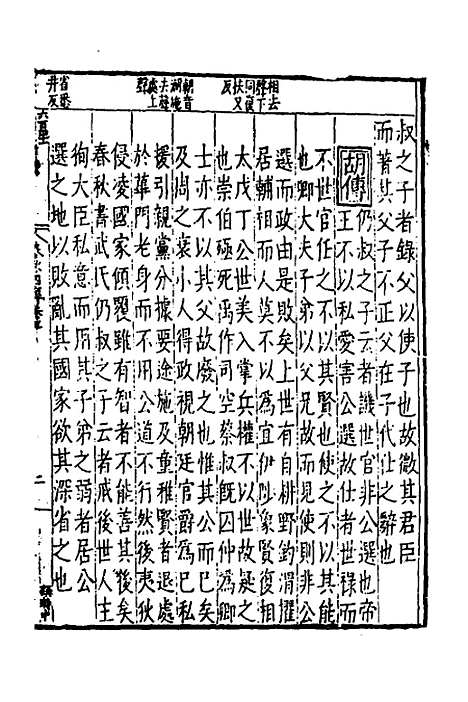 叔之子者錄父以使子也故微其君臣
而著其父子不正父在子代仕之辭也
胡傳
仍叔之子云者譏世官非公選也帝
王不以私愛害公選故仕者世祿而
不世官任之不以其賢也使之不以其能
也卿大夫子弟以父兄故而見使則非公
選而政由是敗矣上世有自耕野釣渭擢
居輔相而人莫不以為宜伊陟象賢復相
太戊丁公世美入掌兵權不以世故疑之
也崇伯殛死禹作司空蔡叔既囚仲為卿
士亦不以其父故廢之也惟其公而已矣
及周之衰小人得政視朝廷官爵為己私
援引親黨分據要途施及童稚賢者退處
於蓽門老身而不用公道不行然後夷狄
侵凌國家傾覆雖有智者不能善其後矣
春秋書武氏仍叔之子云者戒後世人主
徇大臣私意而用其子弟之弱者居公
選之地以敗亂其國家欲其深省之也
相去
聲下
同復
扶又
反
朝音
潮施
去聲
處上
聲
省悉
井反
二